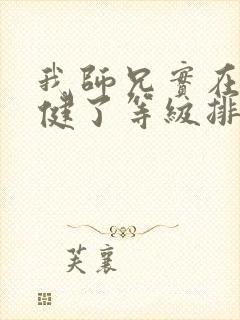 我師兄實在
健了等級排
芙襄